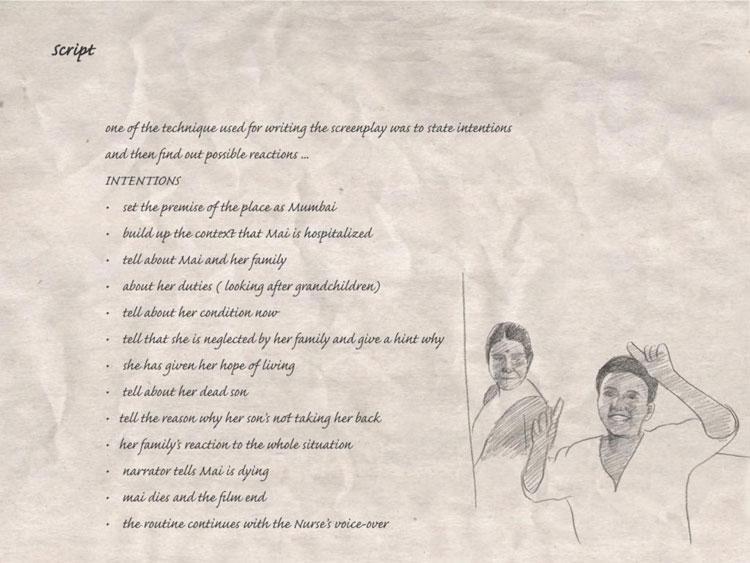 Script
one of the technique used for writing the screenplay was to state intentions
and then find out possible reactions ...
INTENTIONS
• set the premise of the place as Mumbai
• build up the context that Mai is hospitalized
• tell about Mai and her family
• about her duties ( looking after grandchildren)
• tell about her condition now
• tell that she is neglected by her family and give a hint why
• she has given her hope of living
• tell about her dead son
• tell the reason why her son's not taking her back
• her family's reaction to the whole situation
• narrator tells Mai is dying
• mai dies and the film end
• the routine continues with the Nurse's voice-over